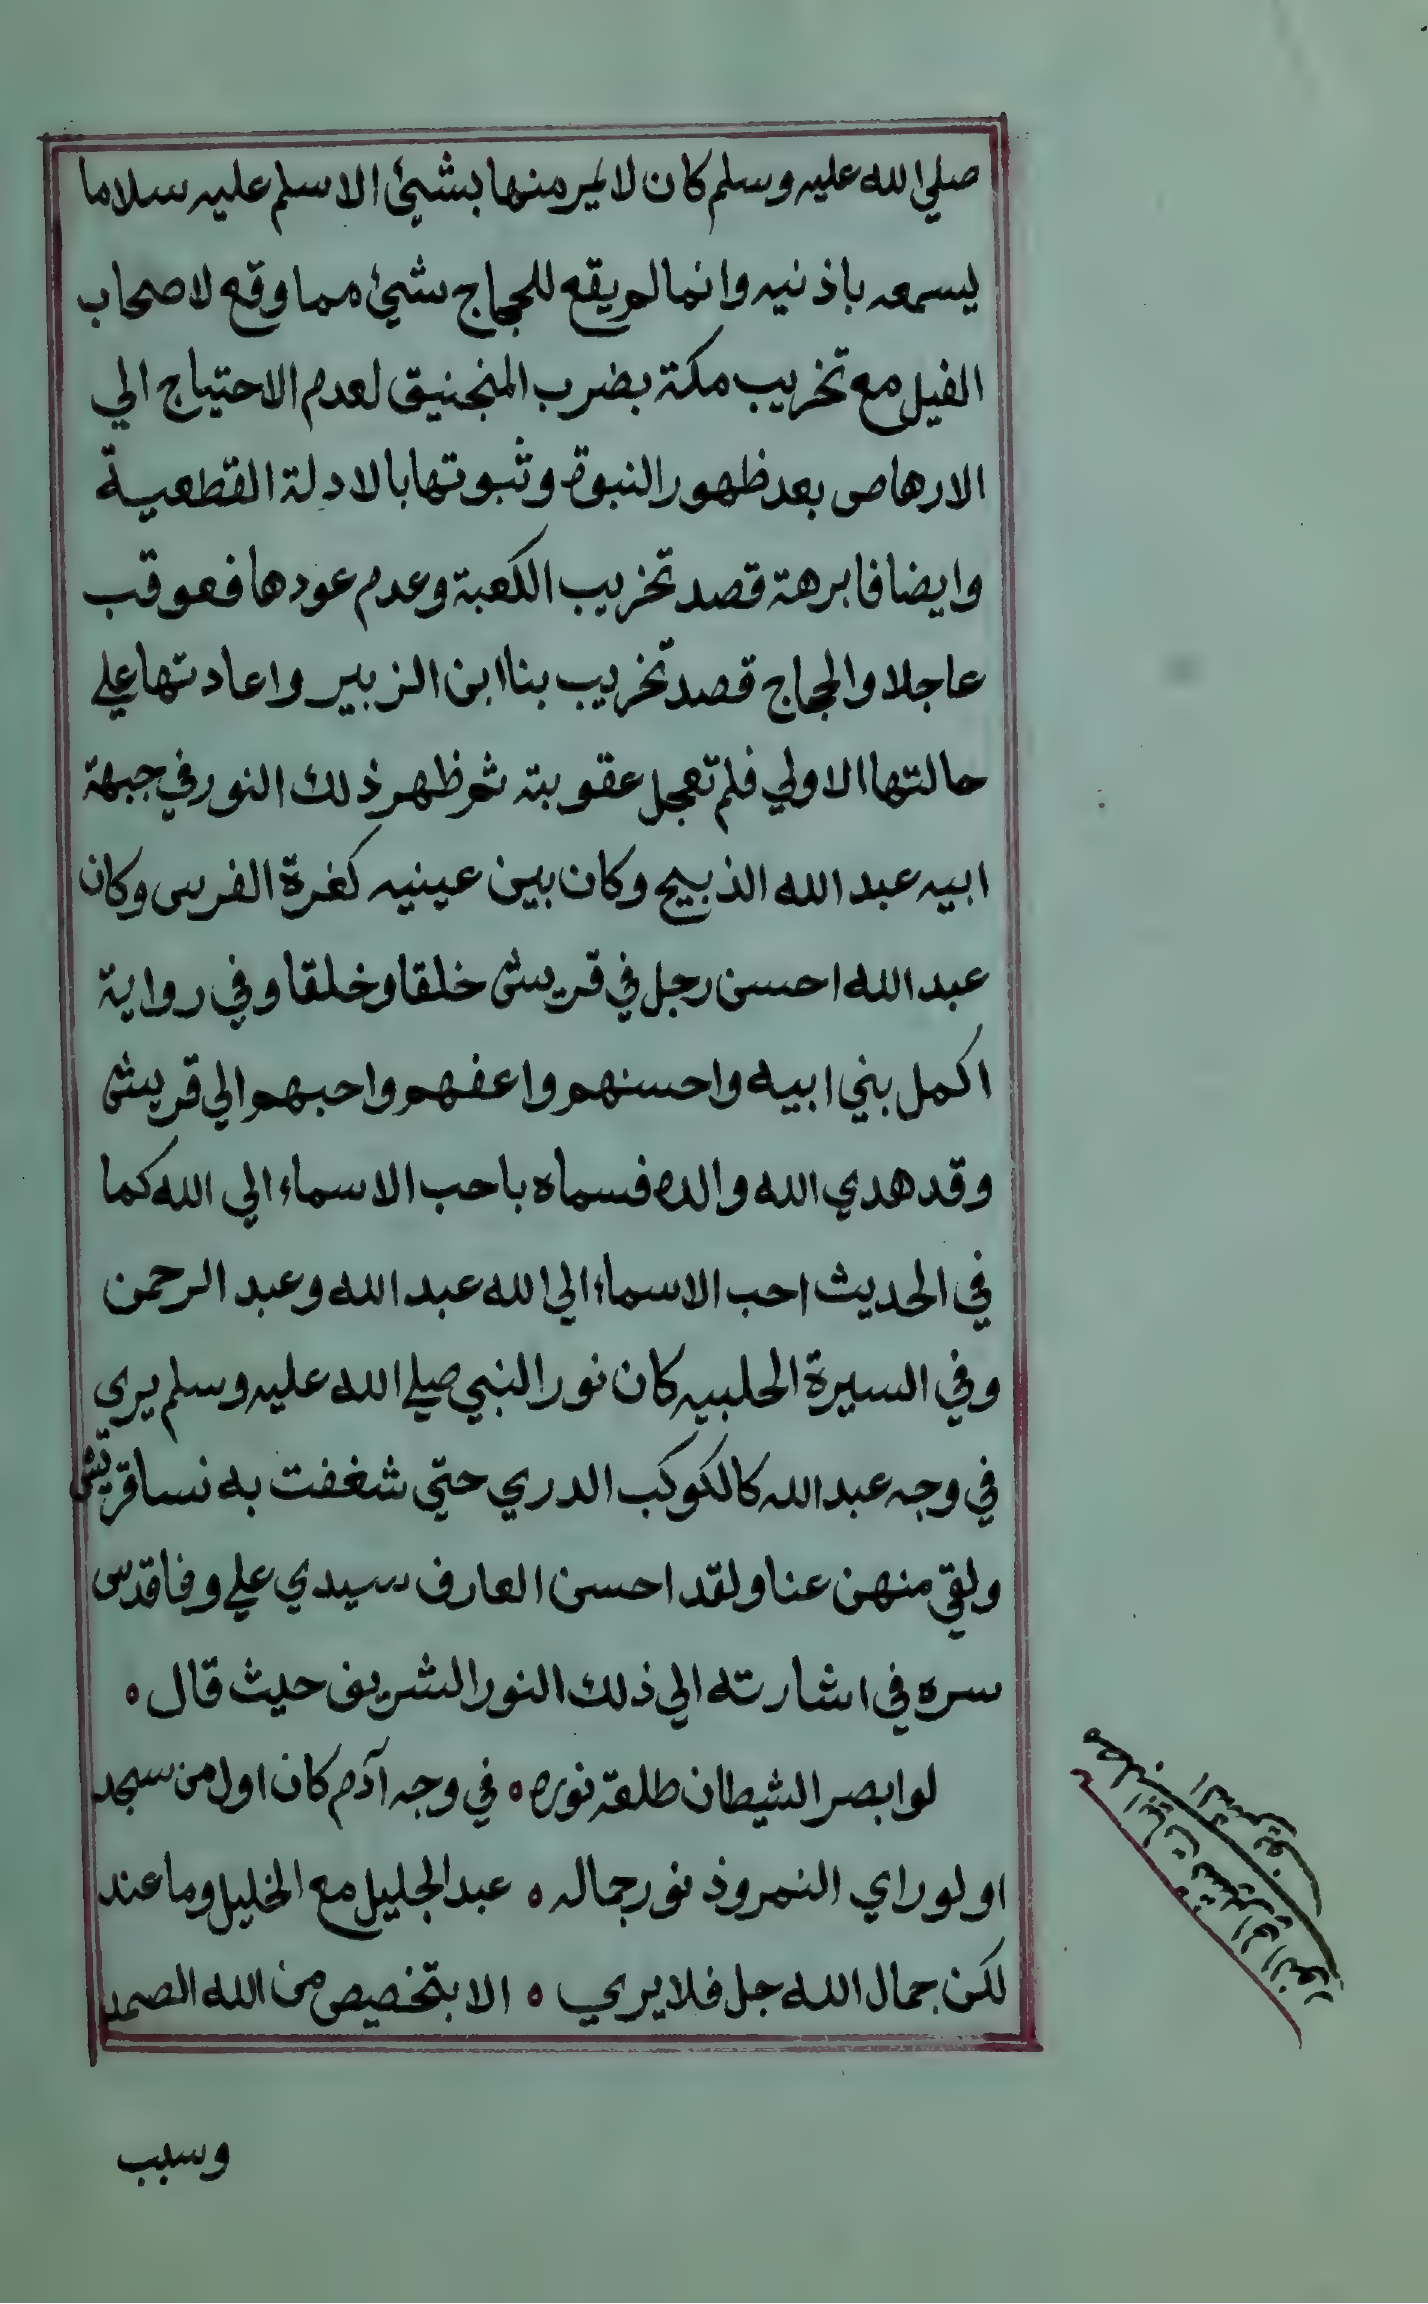 صلي الله عليه وسلم كان لا يمر منها بشيئ الا سلم عليه سلاما
يسمعه باذنيه وانما لم يقع للحجاج شيئ مما وقع لاصحاب
الفيل مع تخريب مكة بضرب المنجنيق لعدم الاحتياج الي
الارهاص بعد ظهور النبوة وثبوتها بالادلة القطعية
وايضا فابرهة قصد تخريب الكعبة وعدم عودها فعوقب
عاجلا والحجاج قصد تخريب بنا ابن الزبير واعادتها علي
حالتها الاولي فلم تعجل عقوبته ثم ظهر ذلك النور في جبهة
ابيه عبد الله الذبيح وكان بين عينيه كغرة الفرس وكان
عبد الله احسن رجل في قريش خلقا وخلقا وفي رواية
اكمل بني ابيه واحسنهم واعفهم واحبهم الي قريش
وقد هدي الله والده فسماه باحب الاسماء الي الله كما
في الحديث احب الاسماء الي الله عبد الله وعبد الرحمن
وفي السيرة الحلبيه كان نور النبي صلي الله عليه وسلم يري
في وجه عبد الله كالكوكب الدري حتي شغفت به نسا قريش
ولقي منهن عنا ولقد احسن العارف سيدي علي وفا قدس
سره في اشارته الي ذلك النور الشريف حيث قال ه
لو ابصر الشيطان طلعة نوره ه في وجه آدم كان اول من سجد
او لو راي النمروذ نور جماله ه عبد الجليل مع الخليل وما عند
لكن جمال الله جل فلا يري ه الا بتخصيص من الله الصمد
مطلب
ابيات تشير الي النور
الشريف
وسبب